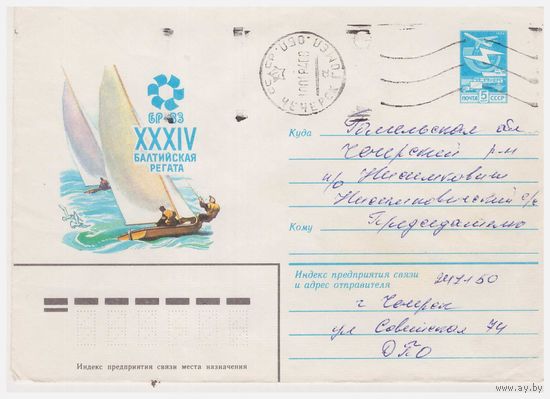 БР-83
XXXIV
БАЛТИЙСКАЯ
РЕГАТА
ЧЕЧЕРСК
ПОЧТА 5 СССР
Куда Гомельская обл
Чечерский р-н
п/о Нисимковичи
Нисимковичский с/с
Кому Председателю
Индекс предприятия связи
и адрес отправителя 247150
г Чечерск
ул Советская 74
ДПО
Индекс предприятия связи места назначения
www.ay.by